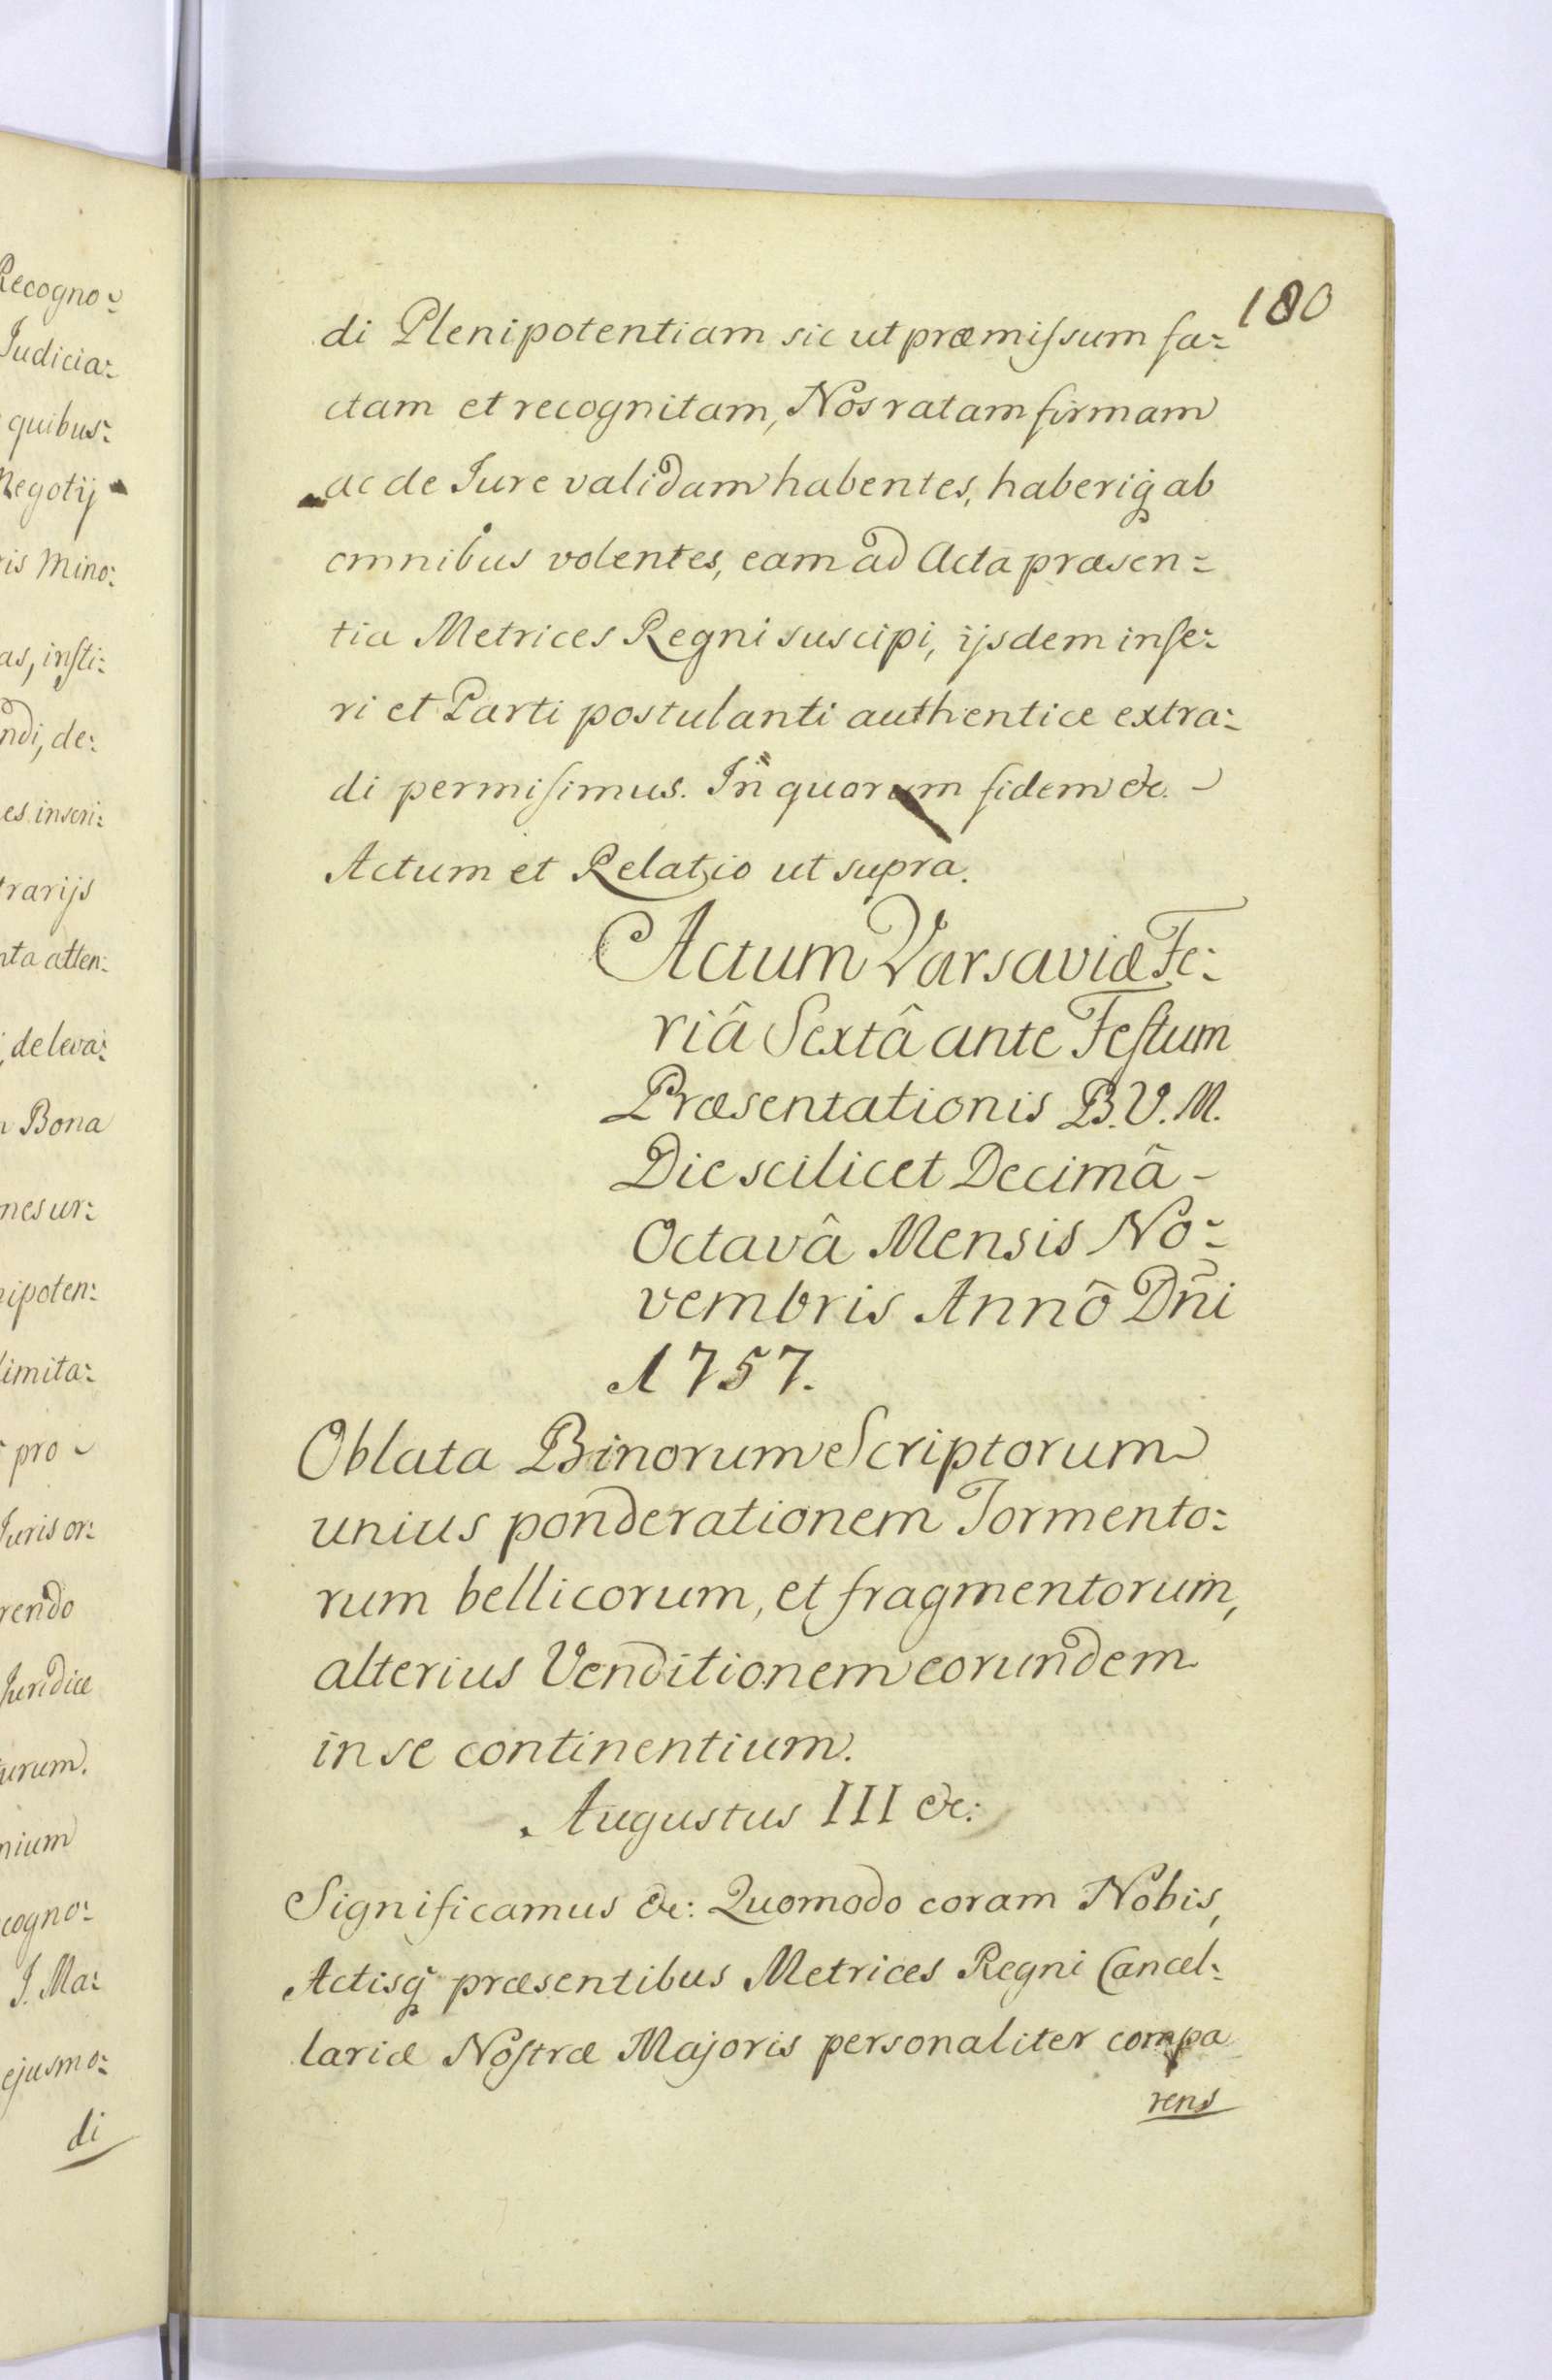 Recogno:
Judicia:
quibus:
Negotij
ris Mino:
as, insti:
ndi, de:
es inseri:
trarijs
nta atten:
de leva:
n Bona
nes ur:
nipoten:
limita:
pro
Juris or:
rendo
Juridice
urum.
nium
cogno:
J. Ma:
ejusmo:
di
180
di Plenipotentiam sic ut præmiſsum fa:
ctam et recognitam, Nos ratam firmam
ac de Jure validam habentes, haberiq́ ab
omnibus volentes, eam ad Acta præsen:
tia Metrices Regni suscipi, ijsdem inſe:
ri et Parti postulanti authentice extra:
di permiſimus. In quorum fidem &c.
Actum et Relatio ut supra.
Actum Varsaviæ Fe:
riâ Sextâ ante Feſtum
Præsentationis B. V. M.
Die scilicet Decimâ
Octavâ Mensis No:
vembris Annô Dn̄i
1757.
Oblata Binorum Scriptorum
unius ponderationem Tormento:
rum bellicorum, et fragmentorum,
alterius Venditionem eorundem
in se continentium.
Augustus III &c:
Significamus &c: Quomodo coram Nobis,
Actisq́ præsentibus Metrices Regni Cancel:
lariæ Noſtræ Majoris personaliter compa
rens